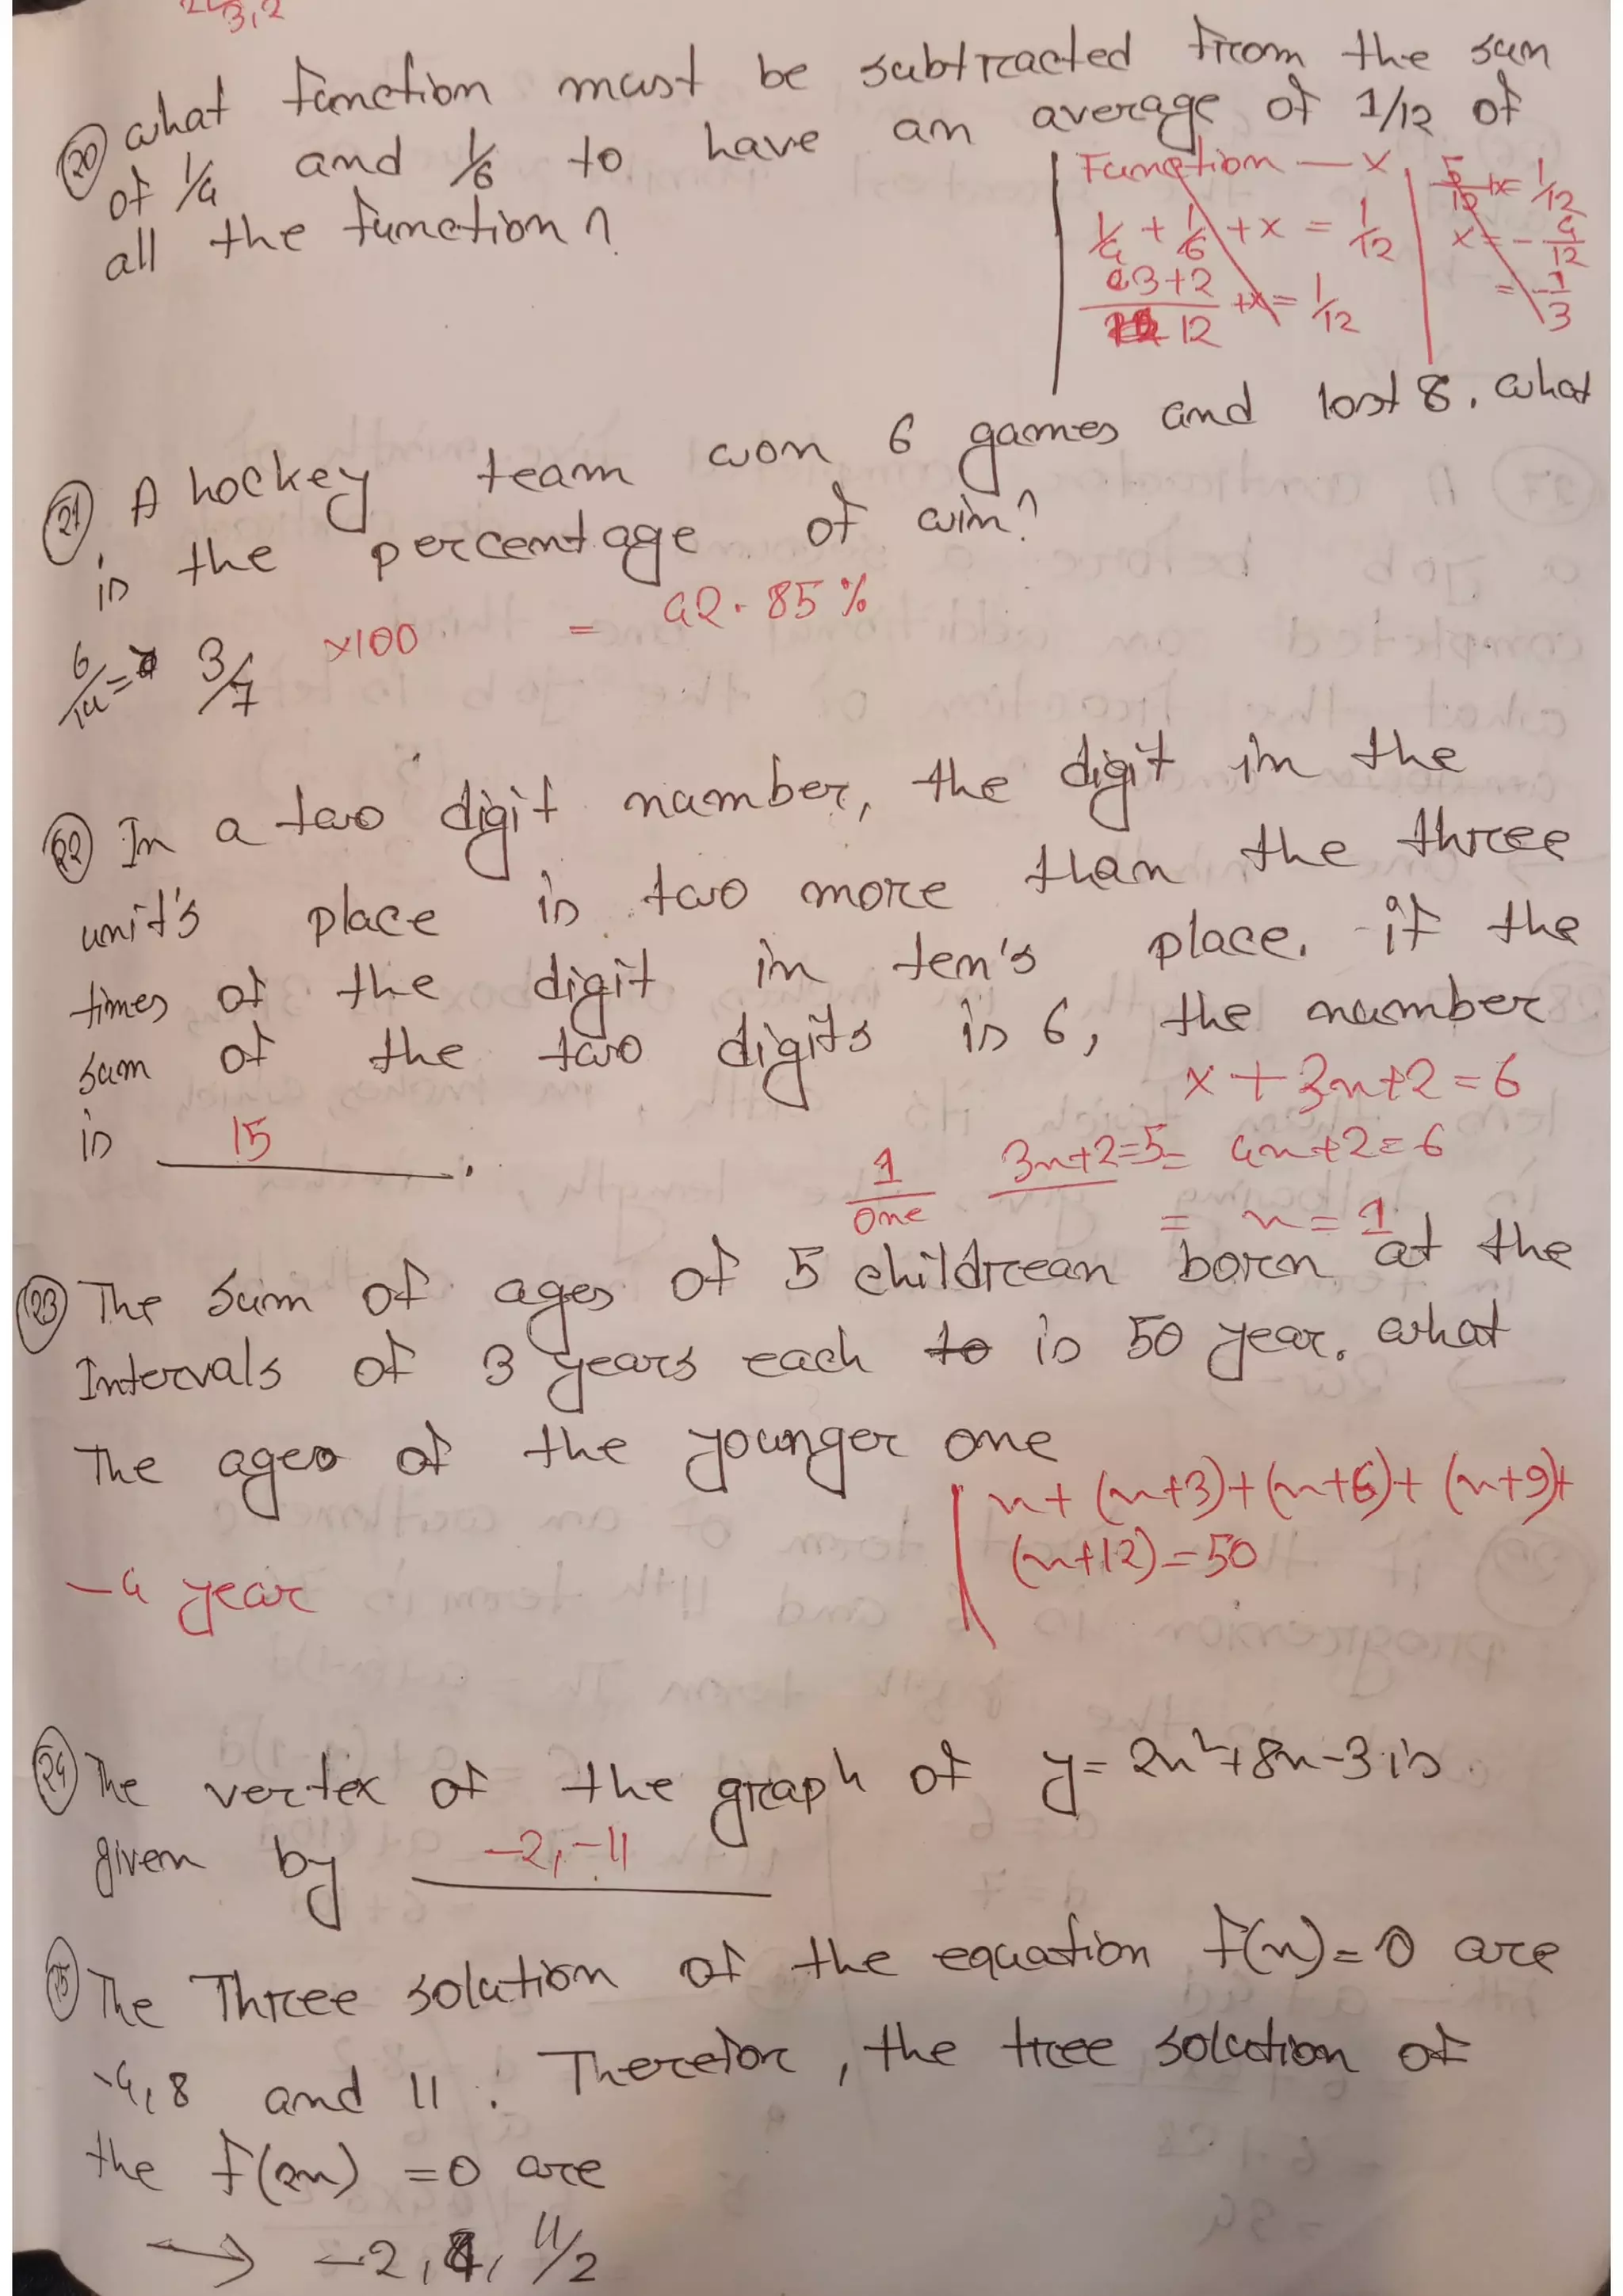 3,2
20 what function must be subtracted from the sum
of 1/4 and 1/6 to have an average of 1/12 of
all the function?
Function — x
1/4 + 1/6 + x = 1/12
3+2/12 + x = 1/12
5/12 + x = 1/12
x = - 4/12
= - 1/3
21 A hockey team won 6 games and lost 8. what
is the percentage of win?
6/14 = 3/7 ×100 = 42.85%
22 In a two digit number, the digit in the
unit's place is two more than the three
times of the digit in ten's place. if the
sum of the two digits is 6, the number
is 15.
x + 3x+2 = 6
4x+2=6
= x = 1
1 3x+2=5
one
23 The sum of ages of 5 childrean born at the
Intervals of 3 years each to is 50 year. what
The ages of the younger one
- 4 year
x+ (x+3)+(x+6)+ (x+9)+
(x+12)=50
24 The vertex of the graph of y= 2x²+8x-3 is
given by -2,-11
The Three solution of the equation f(x)=0 are
-4,8 and 11. Therefor, the tree solution of
the f(2x) =0 are
→ -2, 4, 11/2